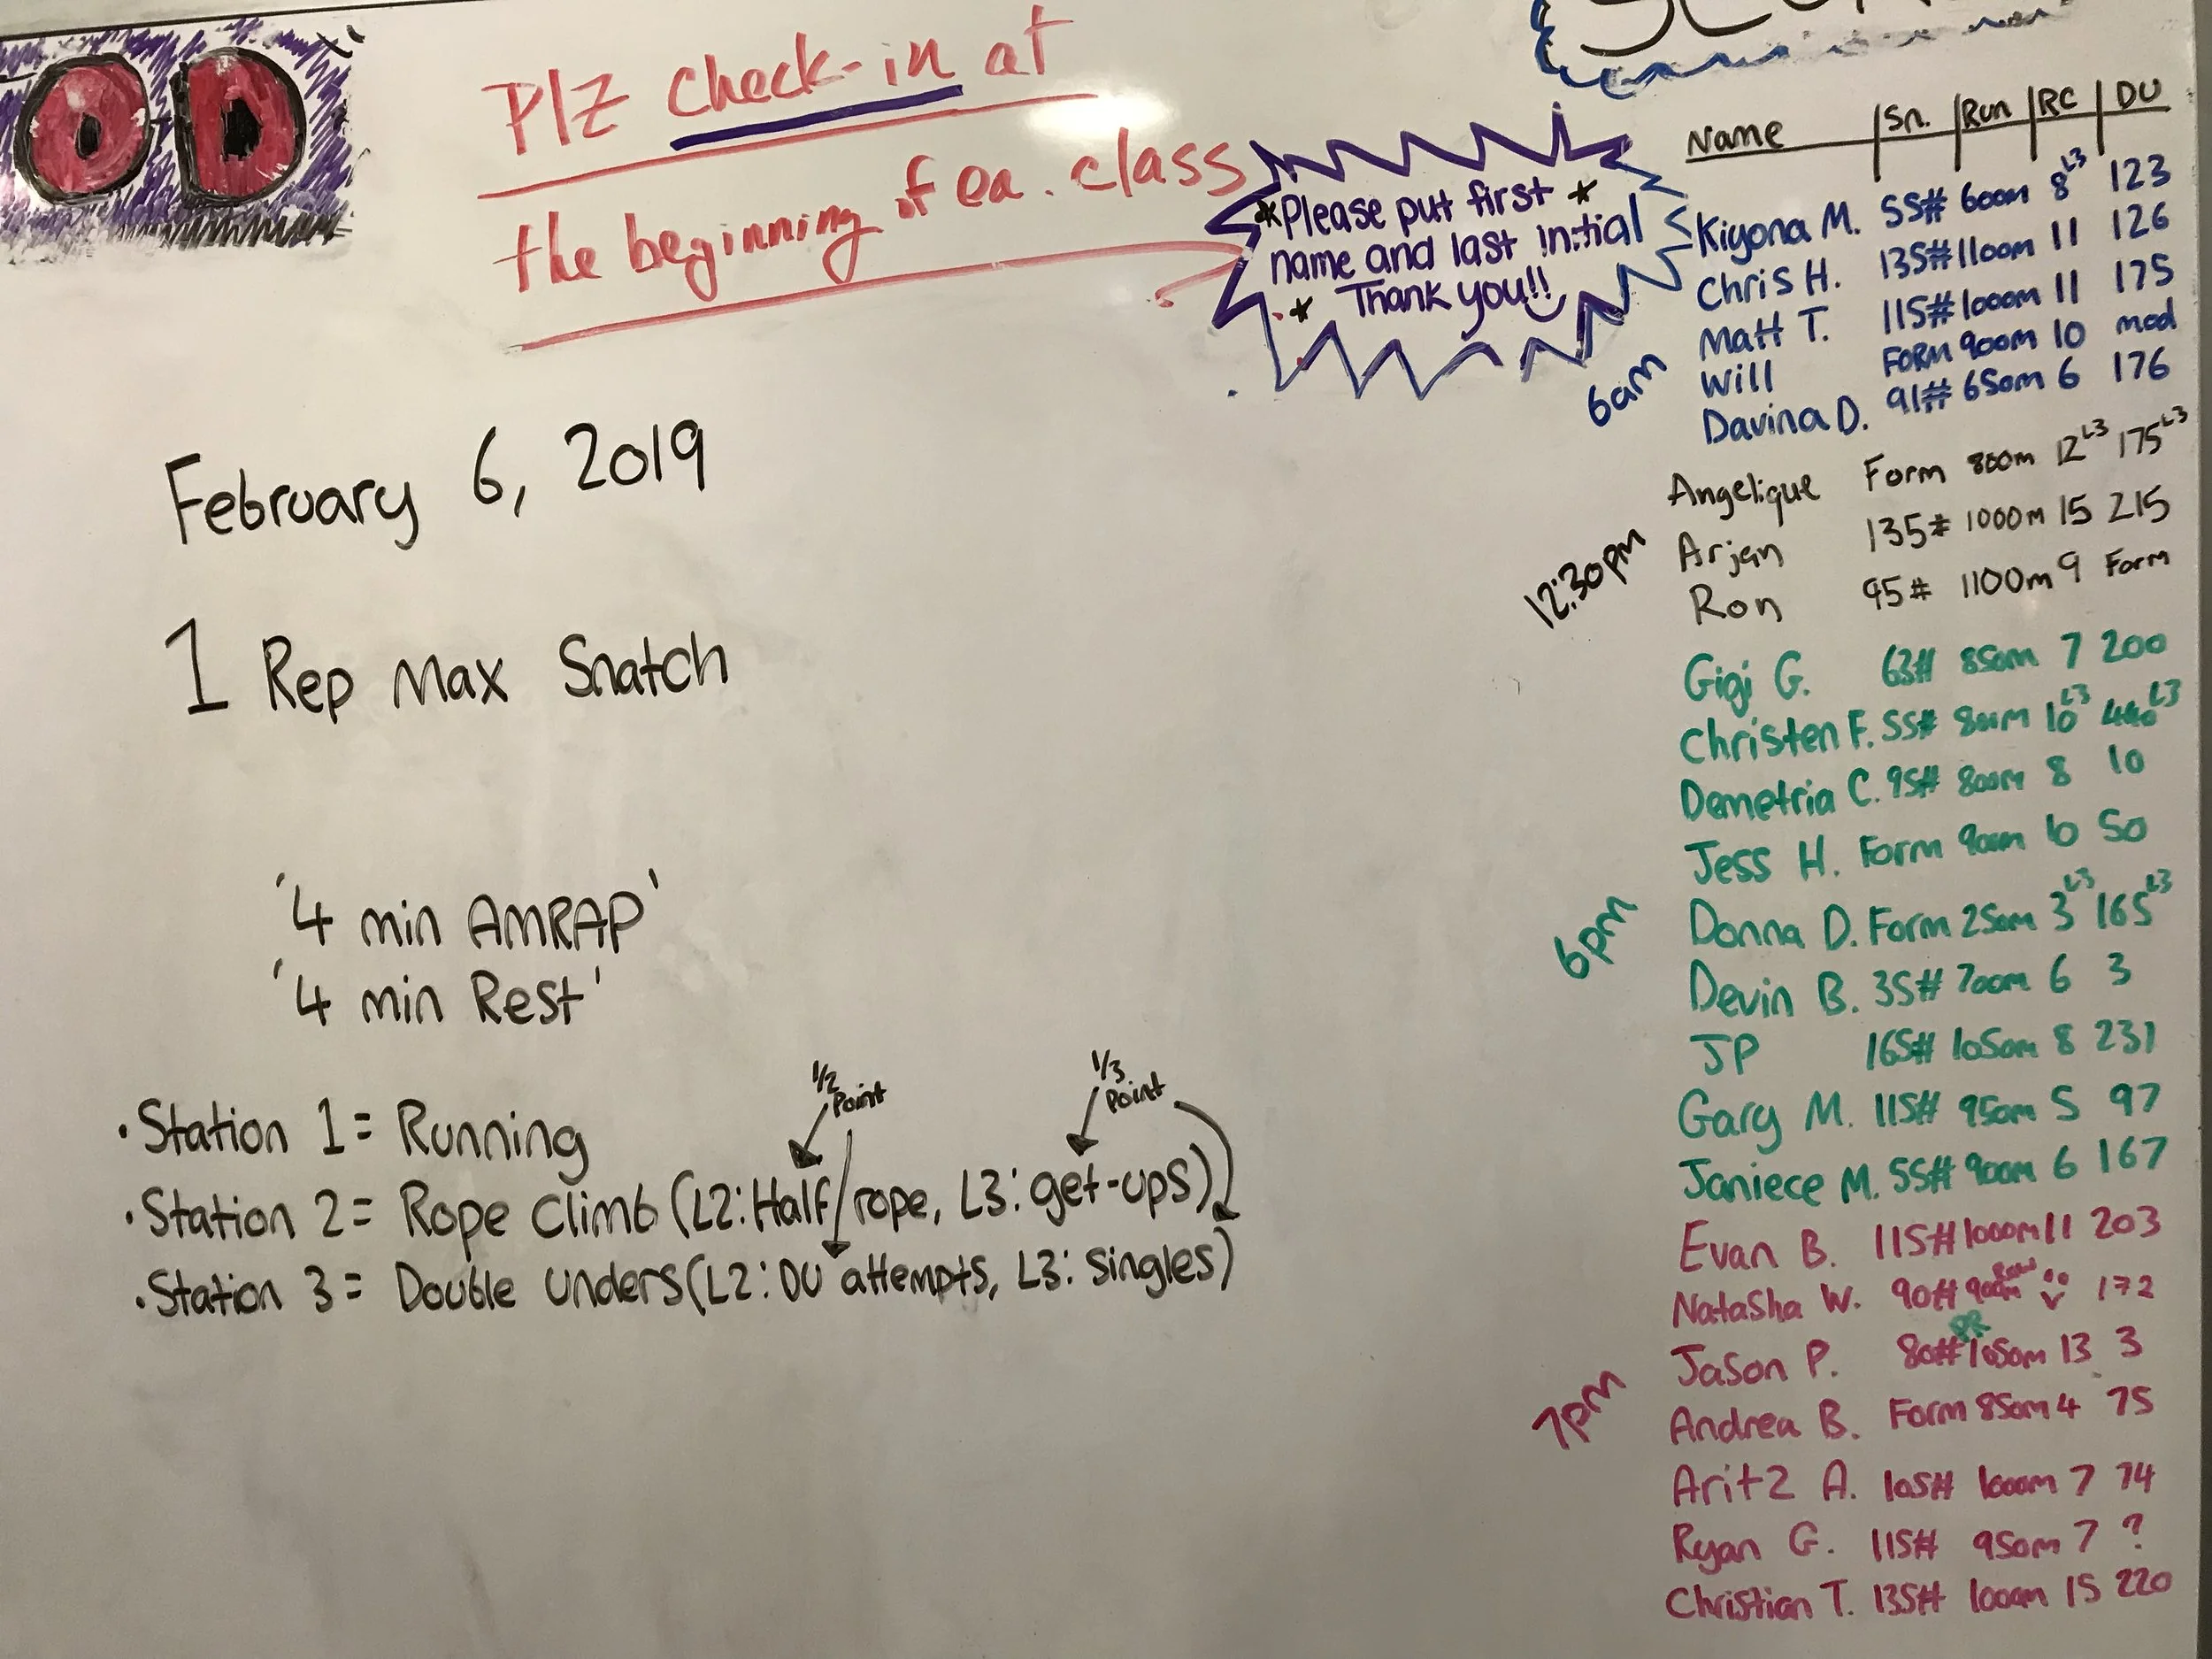 OD
Plz check-in at
the beginning of ea. class
*Please put first *
name and last initial
* Thank you!!
February 6, 2019
1 Rep Max Snatch
'4 min AMRAP'
'4 min Rest'
1/2 Point
1/3 Point
• Station 1 = Running
• Station 2 = Rope Climb (L2: Half/rope, L3: get-ups)
• Station 3 = Double Unders (L2: DU attempts, L3: Singles)
Name | Sn. | Run | RC | DU
6am
Kiyona M. 55# 600m 8 L3 123
Chris H. 135# 1100m 11 126
Matt T. 115# 1000m 11 175
Will FORM 900m 10 mod
Davina D. 91# 650m 6 176
12:30pm
Angelique Form 800m 12 L3 175 L3
Arjan 135# 1000m 15 215
Ron 95# 1100m 9 Form
6pm
Gigi G. 63# 850m 7 200
Christen F. 55# 800m 10 L3 L3
Demetria C. 95# 800m 8 10
Jess H. Form 900m 10 50
Donna D. Form 250m 3 L3 165 L3
Devin B. 35# 700m 6 3
JP 165# 1050m 8 231
Gary M. 115# 950m 5 97
Janiece M. 55# 900m 6 167
7pm
Evan B. 115# 1000m 11 203
Natasha W. 90# 900m 172
Jason P. 80# PR 1050m 13 3
Andrea B. Form 850m 4 75
Aritz A. 105# 1000m 7 74
Ryan G. 115# 950m 7 ?
Christian T. 135# 1000m 15 220